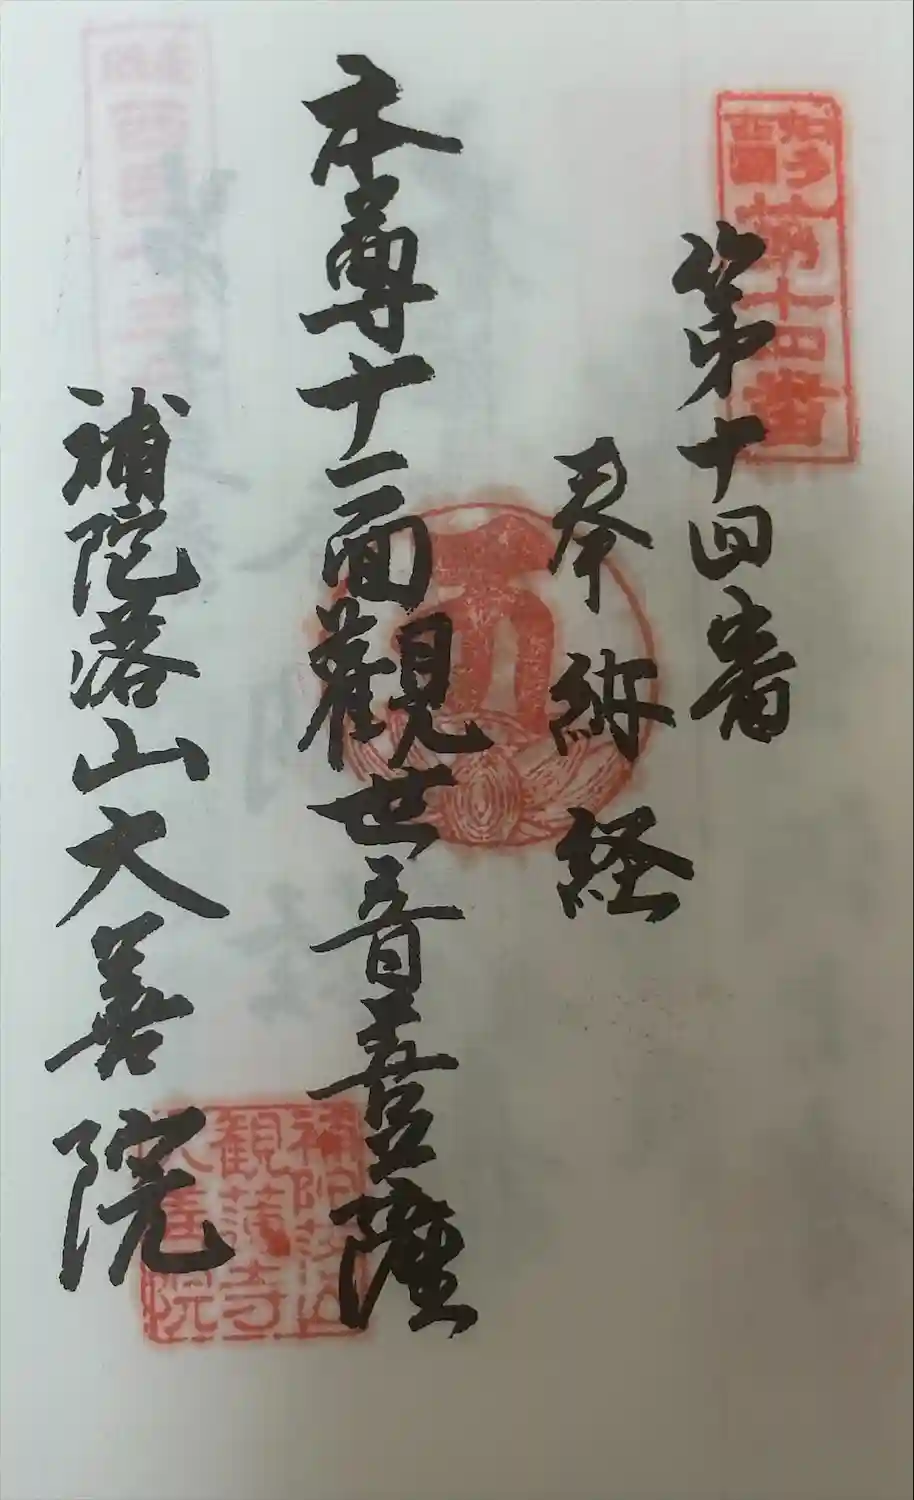 知多
西國
第十四番
第十四番
奉納経
本尊十一面觀世音菩薩
補陀落山大善院
補陀落山
観蓮寺
大善院